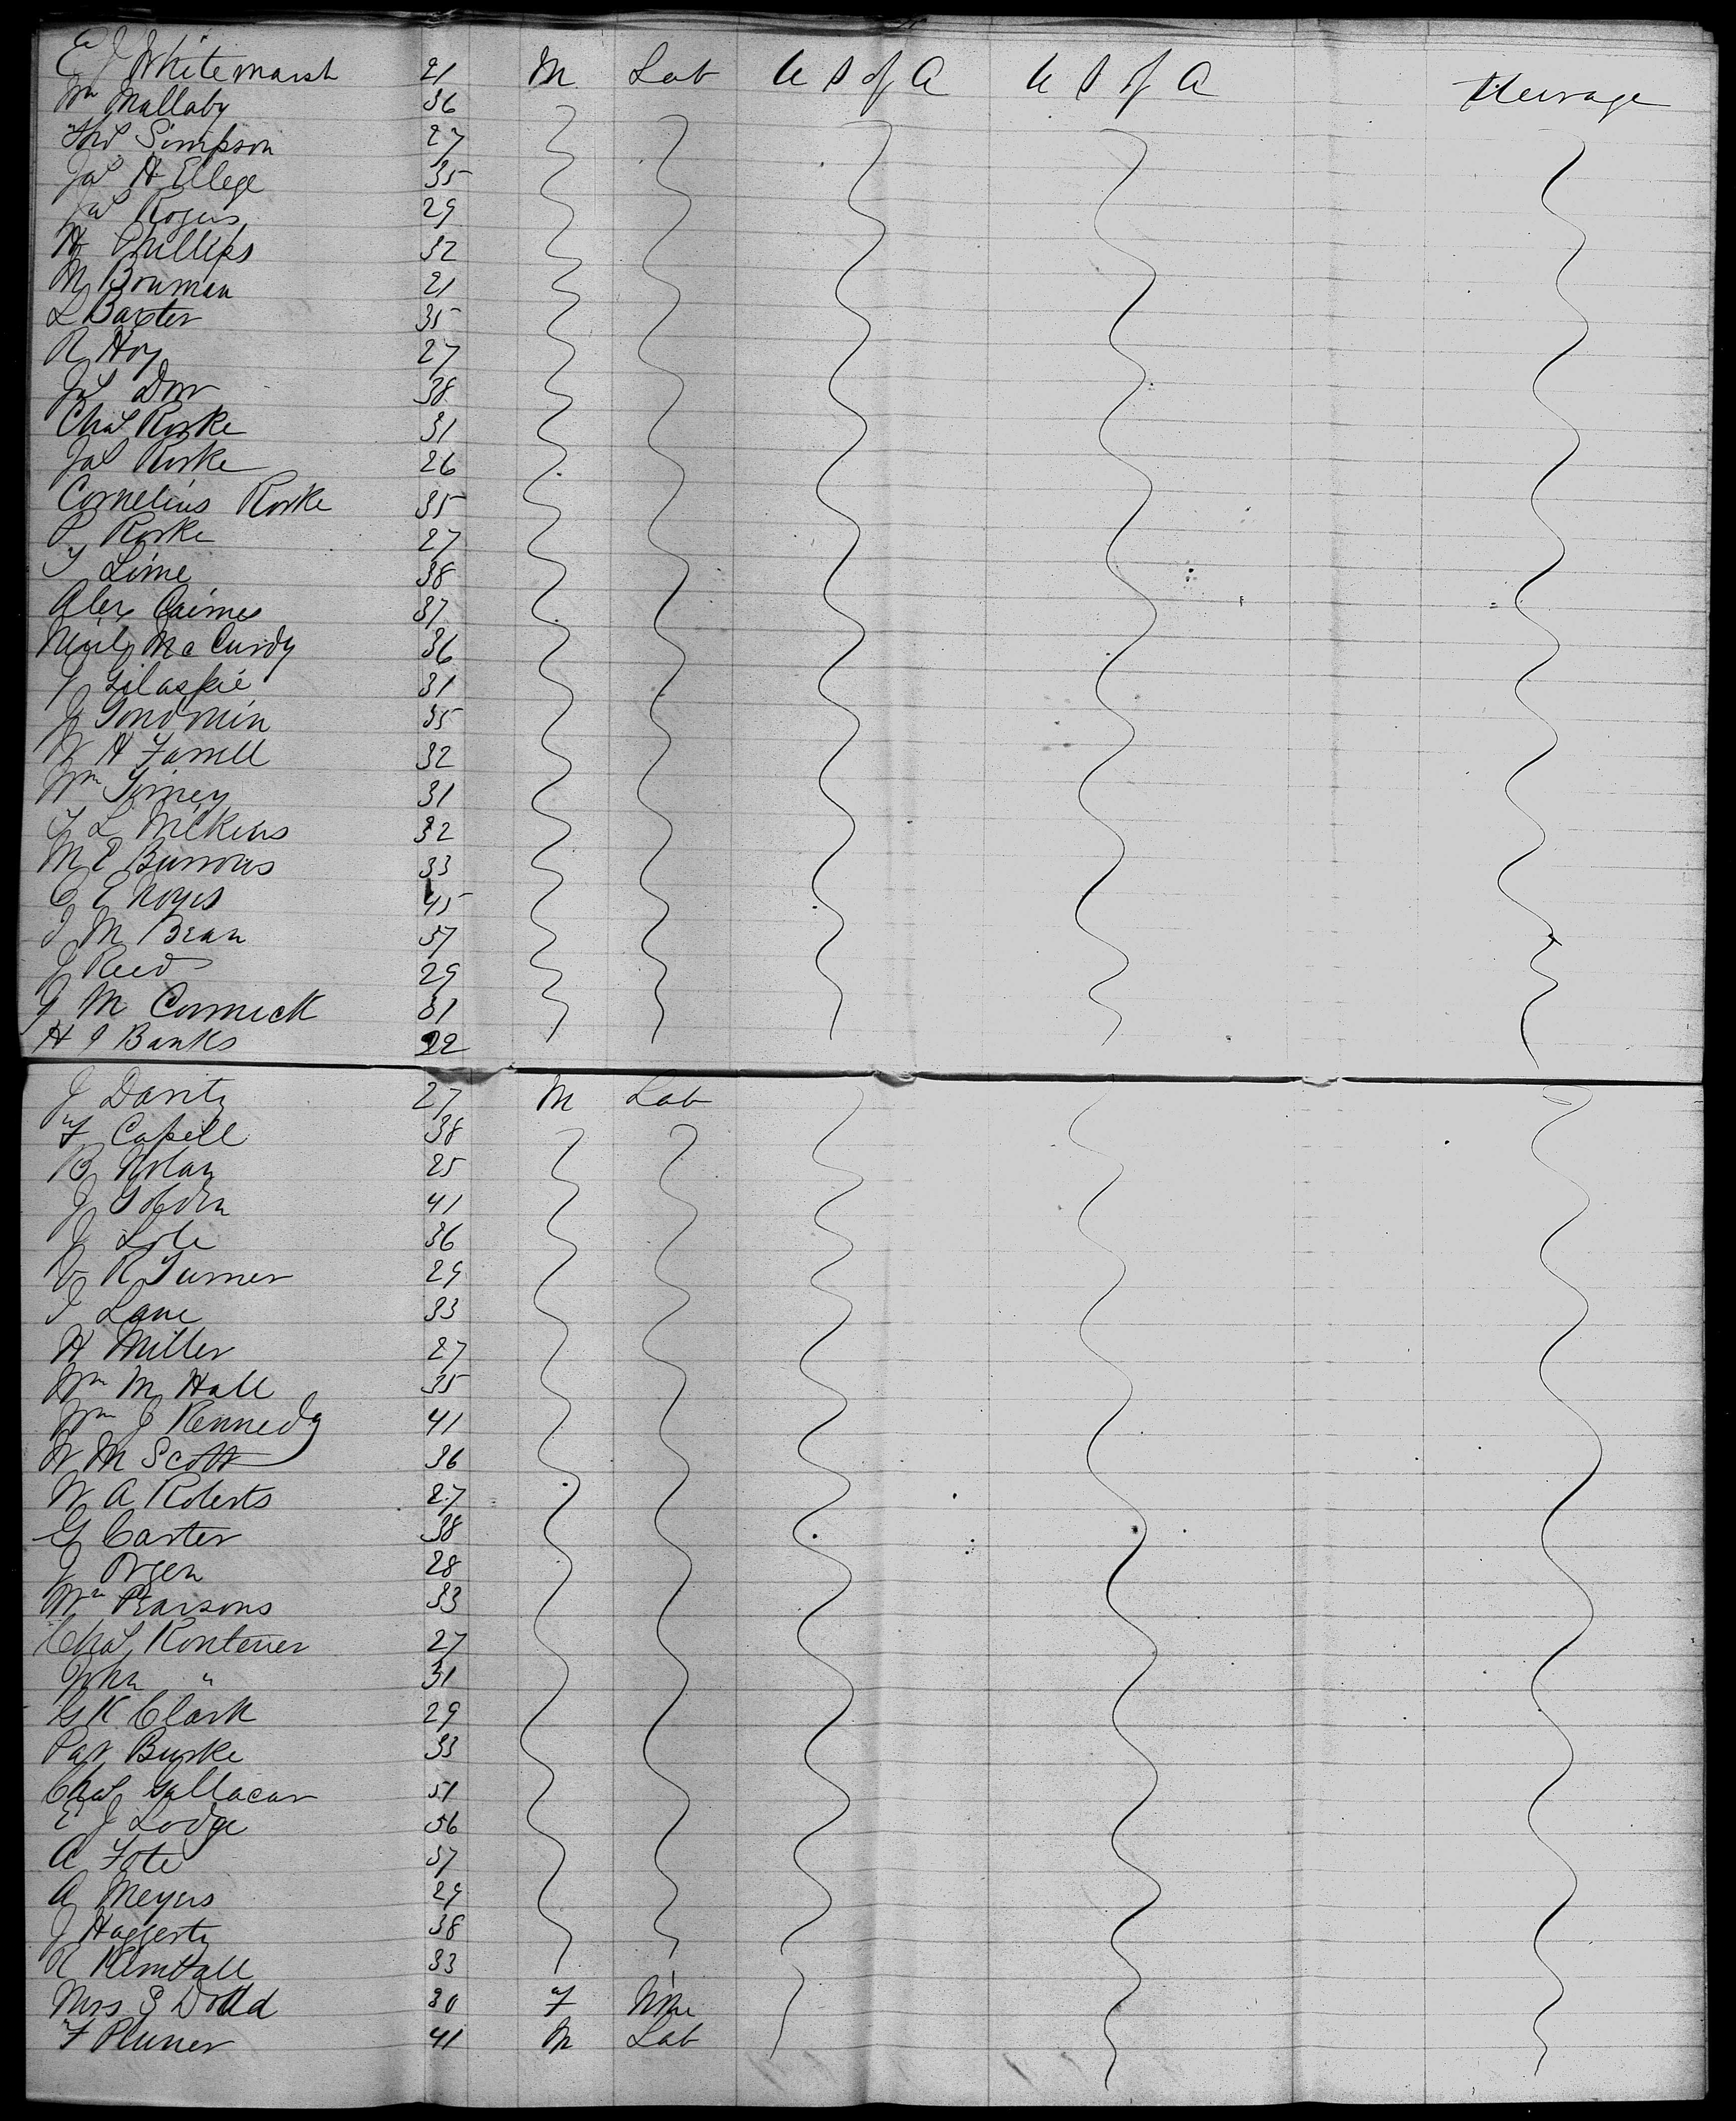 E J Whitemarsh 21 M Lab U S of A U S of A Steerage
Wm Mallaby 36
Thos Simpson 27
Jas H Ellege 35
Jas Rogers 29
H Phillips 32
M Bouman 21
L Baxter 35
R Hoy 27
Jas Dow 38
Chas Rorke 31
Jas Rorke 26
Cornelius Rorke 35
P Rorke 27
T Lime 38
Alex Cairnes 37
Neil McCurdy 36
J Gilaspie 31
J Goodwin 35
W H Farrell 32
Wm Torney 31
T L Wilkins 32
M E Burrows 33
C E Noyes 45
I M Bean 37
J Reed 29
J M Cormick 31
H J Banks 22
J Darity 27 M Lab
F Capell 38
B Nolan 25
J Golden 41
J Lole 36
V R Turner 29
I Lane 33
H Miller 27
Wm M Hall 35
Wm J Kennedy 41
W M Scott 36
W A Roberts 27
G Carter 38
J Orgen 28
Wm Pearsons 33
Chas Kontener 27
John " 31
G K Clark 29
Pat Burke 33
Chas Gallacar 51
E J Lodge 56
A Fote 37
A Meyers 29
J Haggerty 38
R Kimball 33
Mrs S Dodd 30 F
F Pluner 41 M Lab